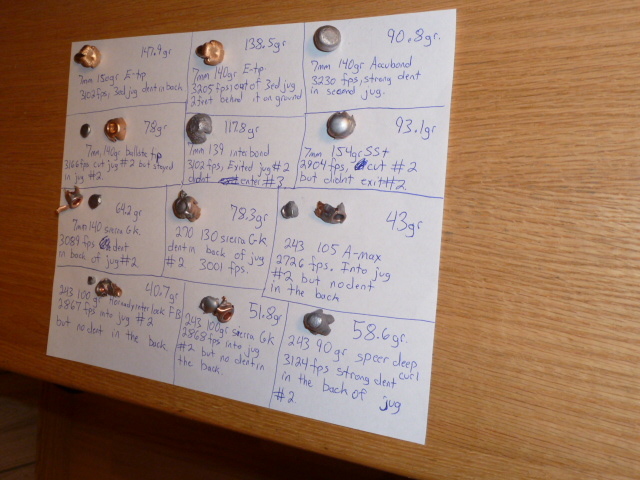 147.9gr
7mm 150gr E-tip
3102fps, 3rd jug dent in back
138.5gr
7mm 140gr E-tip
3205fps, out of 3rd jug
2 feet behind it on ground
90.8gr.
7mm 140gr Accubond
3230 fps, strong dent
in second jug.
78gr
7mm, 140gr ballistic tip
3166fps cut jug #2 but stayed
in jug #2
117.8gr
7mm 139 interbond
3102fps, Exited jug #2
didnt enter #3
93.1gr
7mm 154gr SSt
2904fps, cut #2
but didnt exit #2
64.2gr
7mm 140 sierra GK
3089fps dent
in back of jug #2
78.3gr
270 130 sierra GK
dent in back of jug
#2 3001 fps.
43gr
243 105 A-max
2726 fps. Into jug
#2 but no dent
in the back
40.7gr
243 100gr Hornady interlock FB
2867fps into jug #2
but no dent in the back
51.8gr
243 100gr sierra GK
2868fps into jug
#2 but no dent in
the back.
58.6gr.
243 90 gr speer deep
curl
3124fps strong dent
in the back of jug
#2